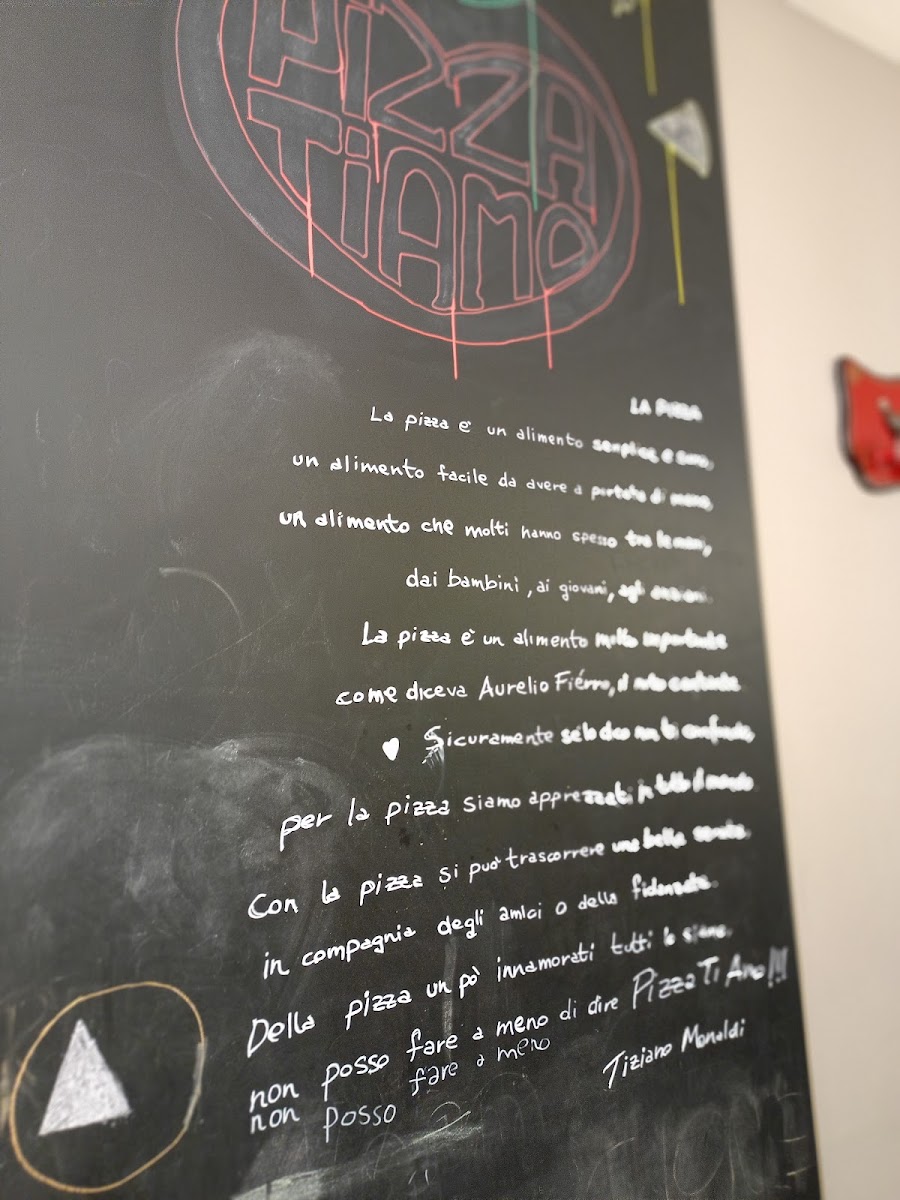 PIZZA
TIAMO
LA PIZZA
La pizza è un alimento semplice e sano,
un alimento facile da avere a portata di mano,
un alimento che molti hanno spesso tra le mani,
dai bambini, ai giovani, agli anziani.
La pizza è un alimento molto importante
come diceva Aurelio Fiérro, il noto cantante
Sicuramente se lo dico non ti confondo,
per la pizza siamo apprezzati in tutto il mondo
Con la pizza si può trascorrere una bella serata
in compagnia degli amici o della fidanzata.
Della pizza un pò innamorati tutti lo siamo.
non posso fare a meno di dire Pizza Ti Amo!!!
non posso fare a meno
Tiziano Monaldi